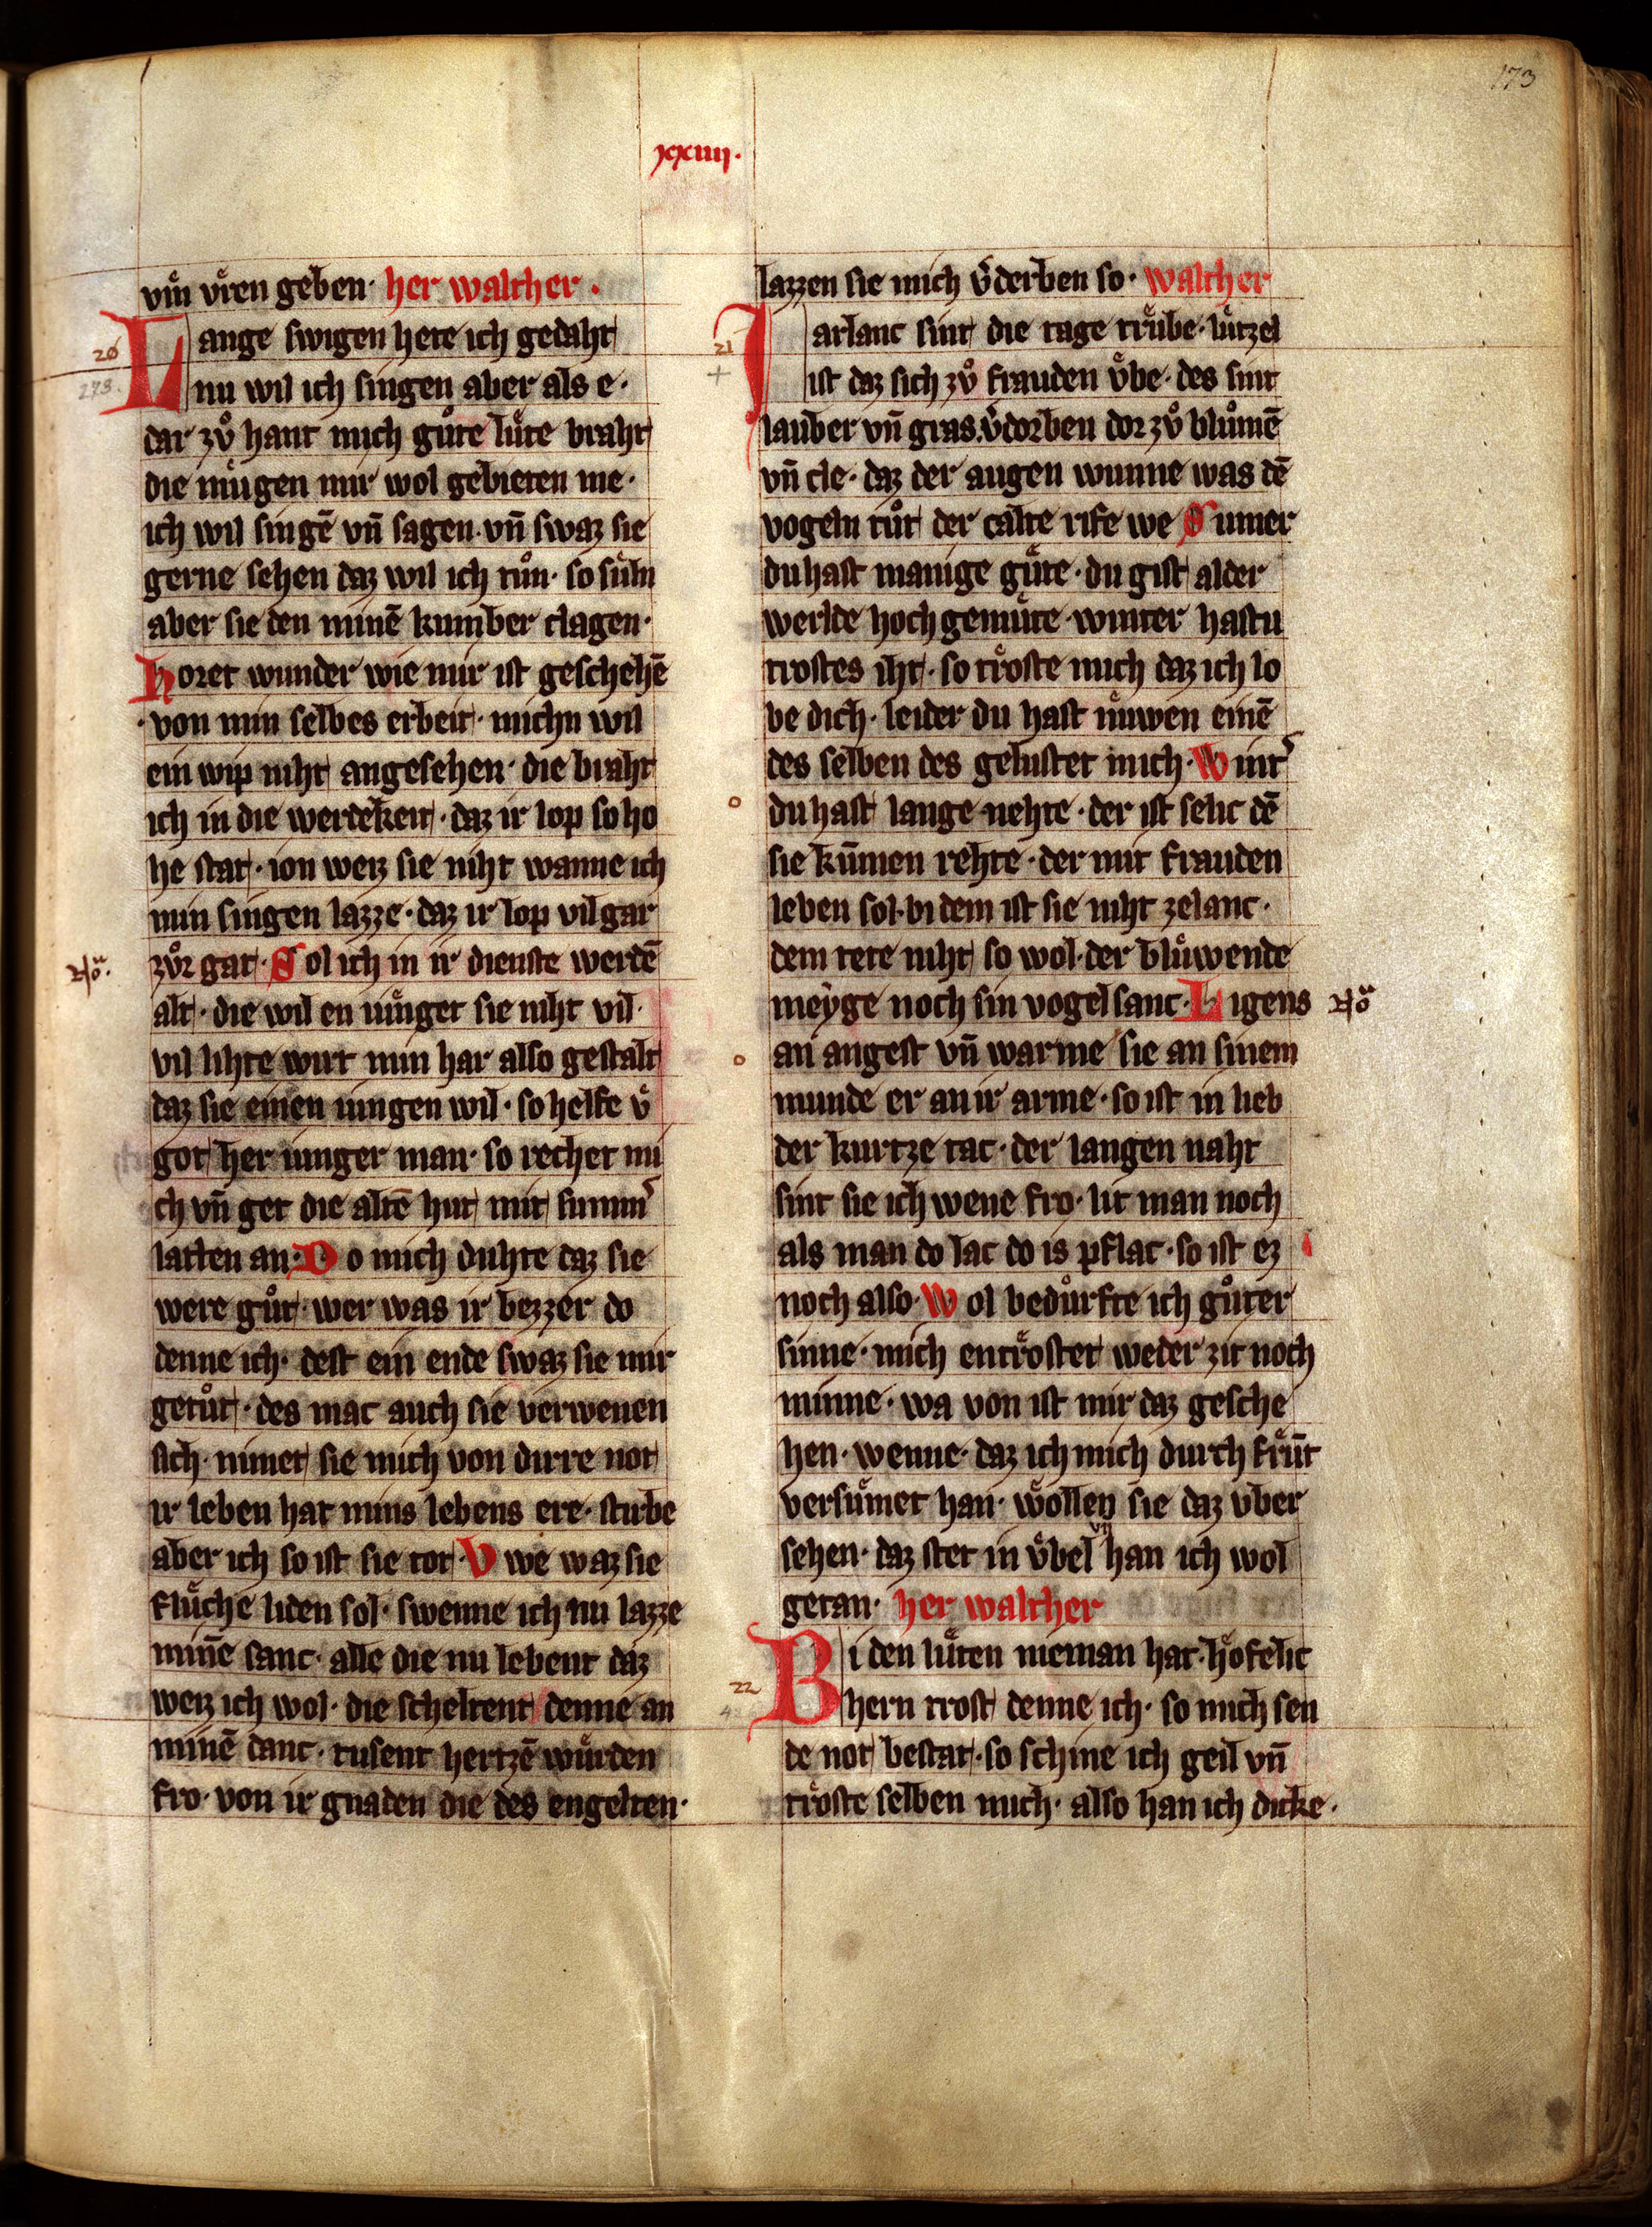 173
xxiiij.
vm̄ vͤren geben· her walther·
20
273.
Lange swigen hete ich gedaht
nu wil ich singen aber als e·
dar zvͦ hant mich guͦte luͤte braht
die muͤgen mir wol gebieten me·
ich wil singē vn̄ sagen· vn̄ swaz sie
gerne sehen daz wil ich tuͦn· so suͤln
aber sie den minē kumber clagen·
horet wunder wie mir ist geschehē
·von min selbes erbeit· michn wil
ein wip niht angesehen· die braht
ich in die werdekeit· daz ir lop so ho
he stat· ion weiz sie niht wanne ich
min singen lazze· daz ir lop vil gar
zvͦr gat· Sol ich in ir dienste werdē
alt· die wil en iuͤnget sie niht vil·
vil lihte wirt min har also gestalt
daz sie einen iungen wil· so helfe vͤ
got her iunger man· so rechet mi
ch vn̄ get die altē hut mit sumer
latten an· Do mich duhte daz sie
were guͦt· wer was ir bezzer do
denne ich· dest ein ende swaz sie mir
getuͦt· des mac auch sie verwenen
sich· nimet sie mich von dirre not
ir leben hat mins lebens ere· stirbe
aber ich so ist sie tot· Owe waz sie
fluͤche liden sol· swenne ich nu lazze
minē sanc· alle die nu lebent daz
weiz ich wol· die scheltent denne an
minē danc· tusent hertzē wuͤrden
fro· von ir gnaden die des engelten·
lazzen sie mich vͤderben so· walther
21
+
Jarlanc sint die tage truͤbe· luͤtzel
ist daz sich zvͦ frauden vͤbe· des sint
lauber vn̄ gras vͤdorben dor zvͦ bluͦmē
vn̄ cle· daz der augen wunne was dē
vogeln tuͦt der calte rife we Sumer
du hast manige guͤte· du gist alder
werlde hoch gemuͤte· winter hastu
trostes iht· so troͤste mich daz ich lo
be dich· leider du hast nuͤwen einē
des selben des gelustet mich· Winter
du hast lange nehte· der ist selic dē
sie kūmen rehte· der mit frauden
leben sol· bi dem ist sie niht zelanc·
dem tete niht so wol· der bluͤwende
meyge noch sin vogel sanc· Ligens
an angest vn̄ warme sie an sinem
munde er an ir arme· so ist in lieb
der kurtze tac· der langen naht
sint sie ich wene fro· lit man noch
als man do lac do is pflac· so ist ez
noch also· Wol beduͦrfte ich guͦter
sinne· mich entroͤstet weder zit noch
minne· wa von ist mir daz gesche
hen· wenne· daz ich mich durch fruͤ̄t
versuͤmet han· woͤllen sie daz vber
sehen· daz stet in vͤbel vn̄ han ich wol
getan· her walther
22
Bi den luͤten nieman hat· hoͤfelic
hern trost denne ich· so mich sen
de not bestat· so schine ich geil vn̄
troͤste selben mich· also han ich dicke·